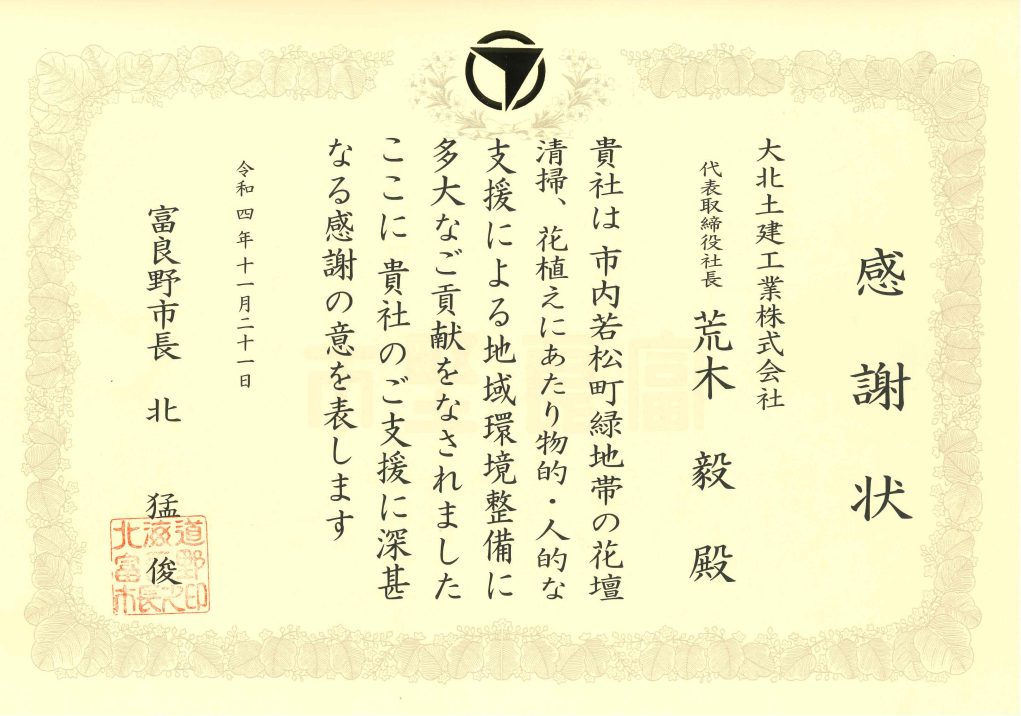 感謝状
大北土建工業株式会社
代表取締役社長 荒木 毅 殿
貴社は市内若松町緑地帯の花壇
清掃、花植えにあたり物的・人的な
支援による地域環境整備に
多大なご貢献をなされました
ここに貴社のご支援に深甚
なる感謝の意を表します
令和四年十一月二十一日
富良野市長 北 猛俊